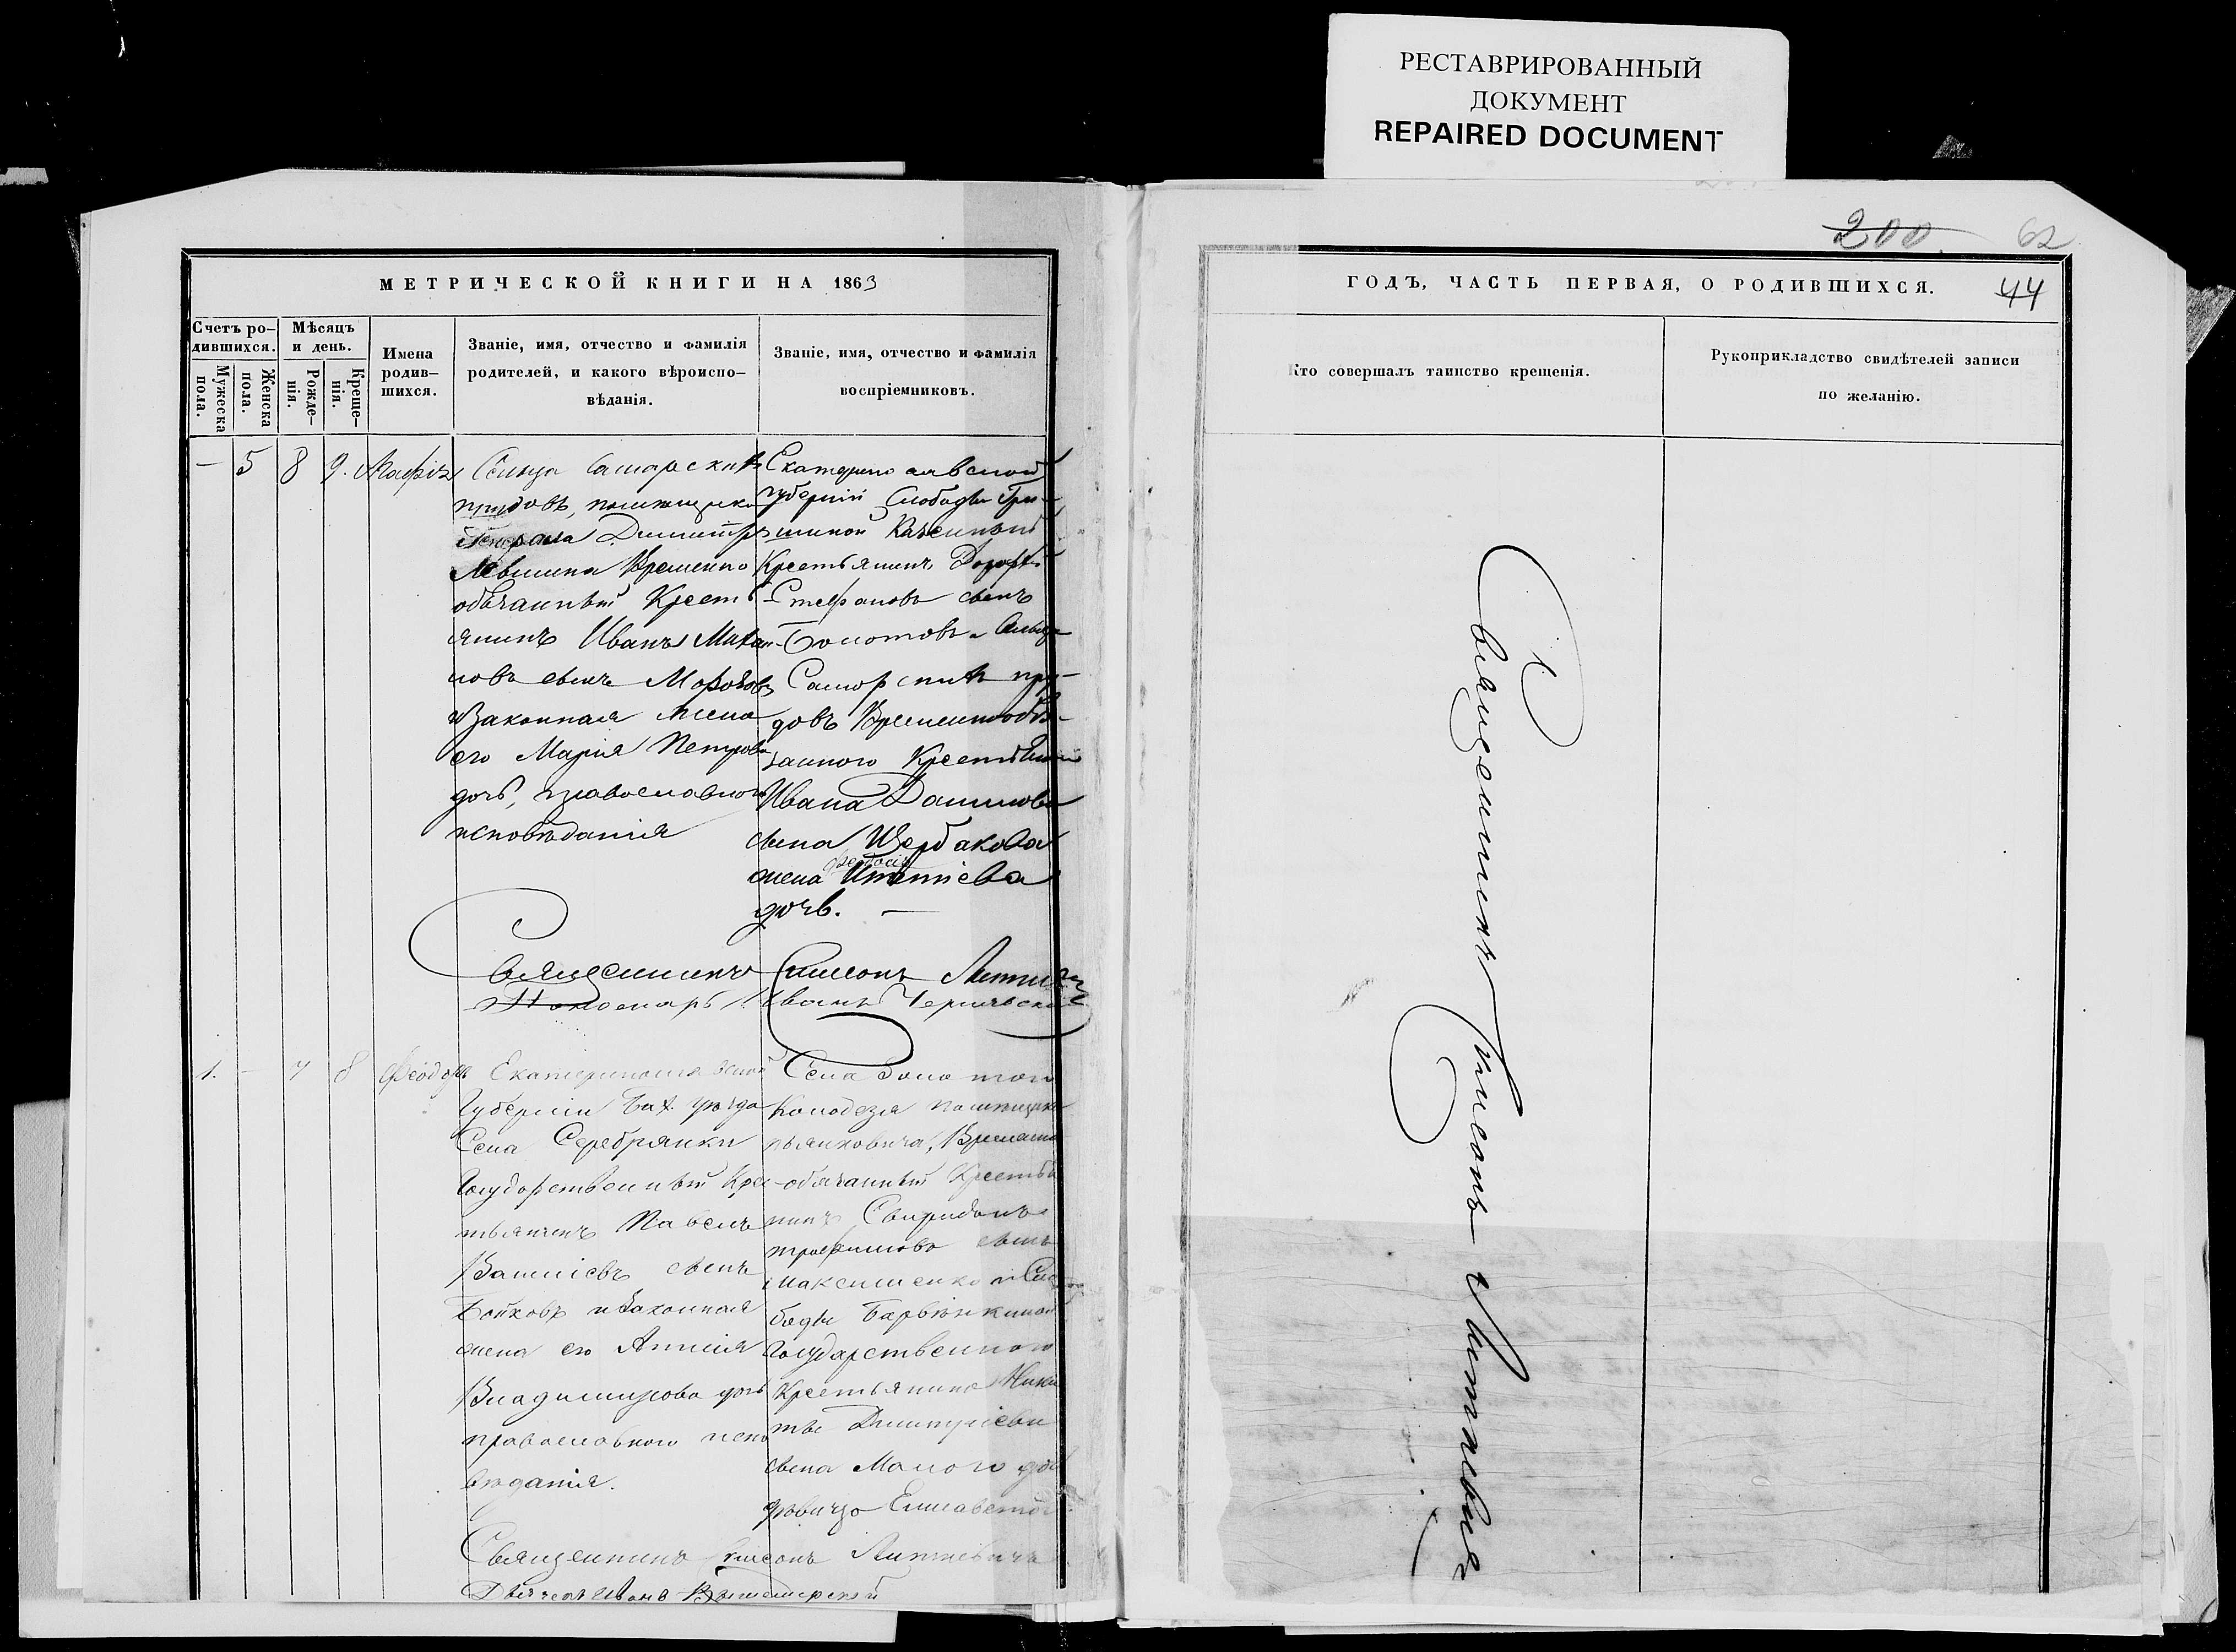 РЕСТАВРИРОВАННЫЙ
ДОКУМЕНТ
REPAIRED DOCUMENT
МЕТРИЧЕСКОЙ КНИГИ НА 1863
Счетъ ро-
дившихся.
Мужеска
пола.
Женска
пола.
Мѣсяцъ
и день.
Рожде-
нія.
Креще-
нія.
Имена
родив-
шихся.
Званіе, имя, отчество и фамилія
родителей, и какого вѣроиспо-
вѣданія.
Званіе, имя, отчество и фамилія
воспріемниковъ.
— 5 8 9. Агафія
Сельца Самарскихъ
прудовъ, помѣщика
Генерала Димитрія
Левшина Временно
обязанный Кресть
янинъ Иванъ Михай
ловъ сынъ Морозовъ
и Законная жена
его Марія Петрова
дочь, православнаго
исповѣданія
Екатеринославской
губерніи Слободы Гри-
шиной Казенный
Крестьянинъ Дорофей
Стефановъ сынъ
Болотовъ и Сельца
Самарскихъ пру-
довъ Временнообя-
заннаго Крестьянина
Ивана Данилова
сына Щербакова
жена Феодосія Игнатіева
дочь. —
Священникъ Симеонъ
Пономарь Иванъ
1. — 7 8 Феодоръ
Екатеринославской
Губерніи Бах. уѣзда
Села Серебрянки
Государственный Крес
тьянинъ Павелъ
сынъ
Бойковъ и Законная
жена его
Владимирова дочь
православнаго испо
вѣданія.
Села Золотого
Колодезя помѣщика
Временно
-обязанный Крестья
нинъ Свиридонъ
Трофимовъ сынъ
Максименко и Сло
боды Барвѣнкиной
Государственного
Крестьянина Ники
ты Димитріева
сына Малого до
дѣвица Елисавета
Священникъ Симеонъ
Иванъ
200 62
44
ГОДЪ, ЧАСТЬ ПЕРВАЯ, О РОДИВШИХСЯ.
Кто совершалъ таинство крещенія.
Рукоприкладство свидѣтелей записи
по желанію.
Священникъ Симеонъ